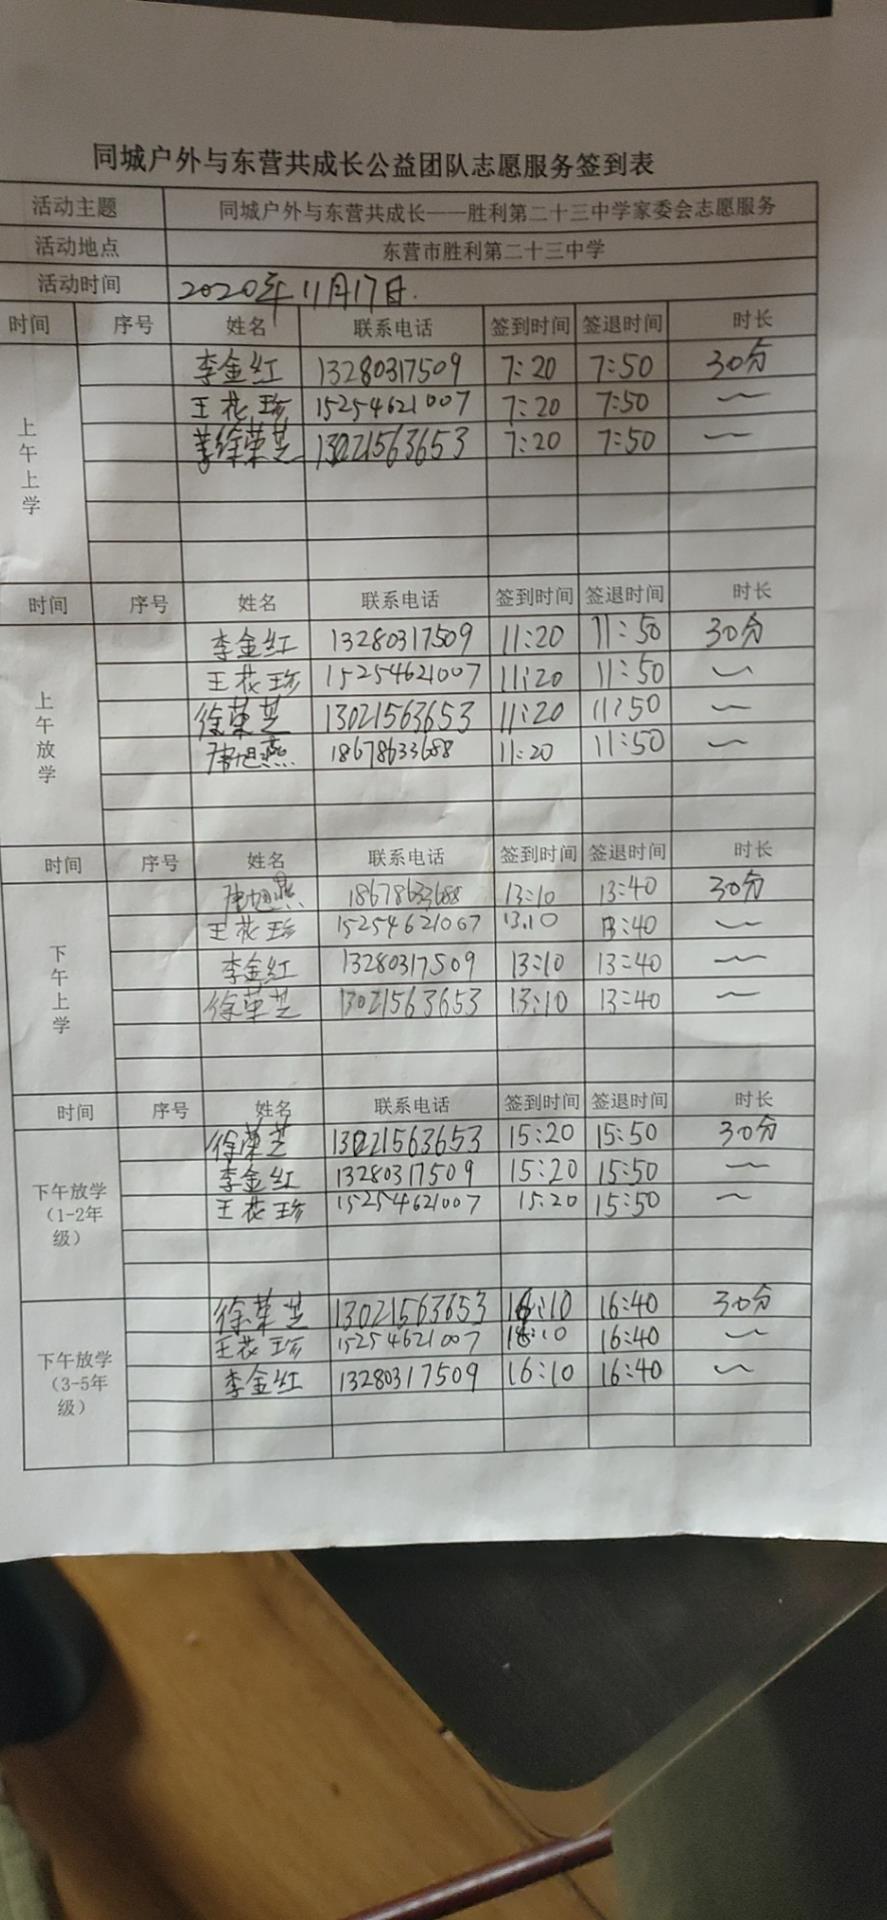 同城户外与东营共成长公益团队志愿服务签到表
活动主题 同城户外与东营共成长——胜利第二十三中学家委会志愿服务
活动地点 东营市胜利第二十三中学
活动时间 2020年11月17日.
时间 序号 姓名 联系电话 签到时间 签退时间 时长
上午上学
李金红 13280317509 7:20 7:50 30分
王花珍 15254621007 7:20 7:50 〜
徐荣芝 13021563653 7:20 7:50 〜
时间 序号 姓名 联系电话 签到时间 签退时间 时长
上午放学
李金红 13280317509 11:20 11:50 30分
王花珍 15254621007 11:20 11:50 〜
徐荣芝 13021563653 11:20 11:50 〜
唐旭燕 18678633688 11:20 11:50 〜
时间 序号 姓名 联系电话 签到时间 签退时间 时长
下午上学
唐旭燕 18678633688 13:10 13:40 30分
王花珍 15254621007 13:10 13:40 〜
李金红 13280317509 13:10 13:40 〜
徐荣芝 13021563653 13:10 13:40 〜
时间 序号 姓名 联系电话 签到时间 签退时间 时长
下午放学
(1-2年
级)
徐荣芝 13021563653 15:20 15:50 30分
李金红 13280317509 15:20 15:50 〜
王花珍 15254621007 15:20 15:50 〜
下午放学
(3-5年
级)
徐荣芝 13021563653 16:10 16:40 30分
王花珍 15254621007 16:10 16:40 〜
李金红 13280317509 16:10 16:40 〜